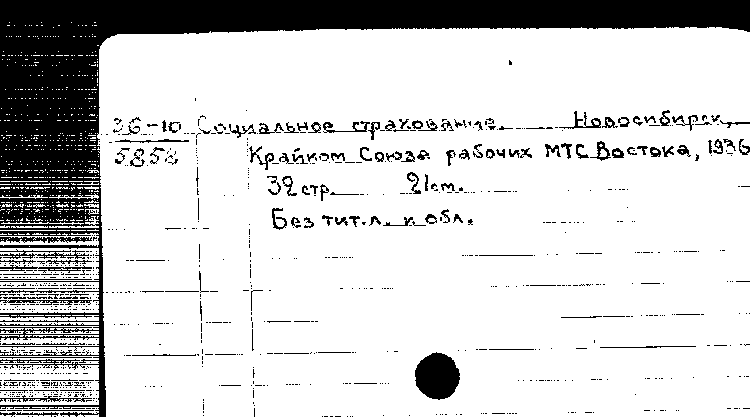 36-10 Социальное страхование. Новосибирск,
5858 Крайком Союза рабочих МТС Востока, 1936
32 стр. 21 см.
Без тит. л. и обл.